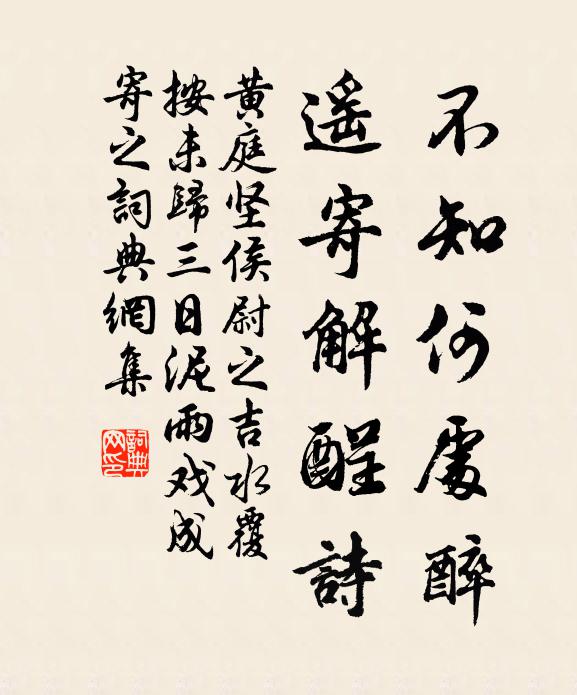 不知何處醉
遥寄解酲詩
黄庭坚侯尉之吉水覆
按未歸三日泥雨戏成
寄之詞典網集
詞典
网印